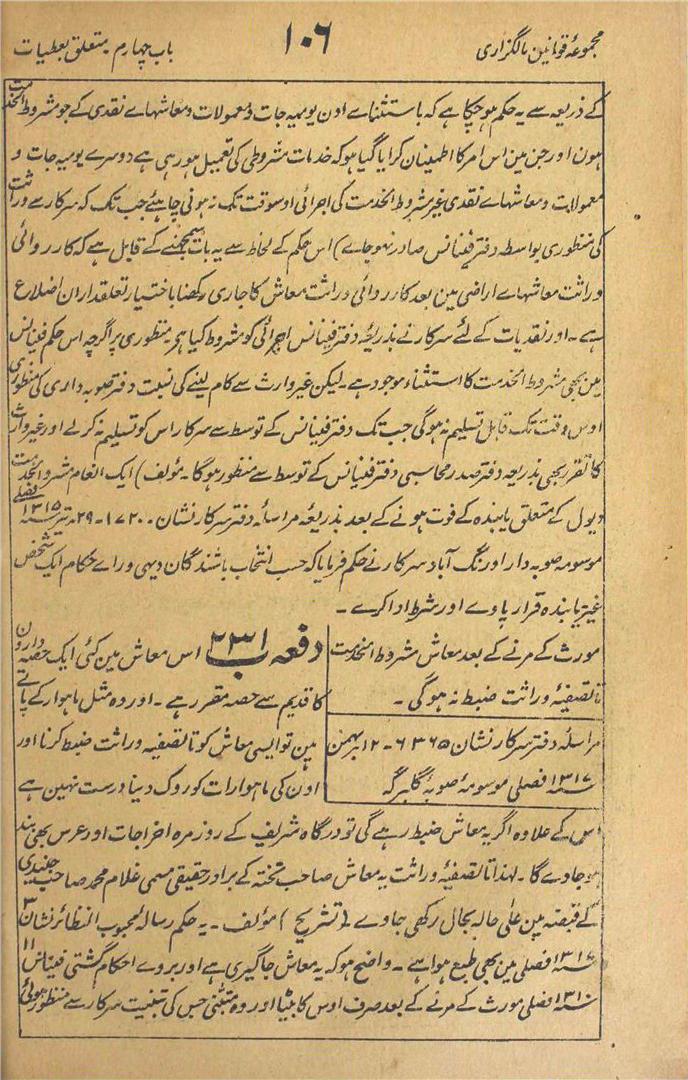 مجموعۂ قوانین مالگزاری
۱۰۶
باب چہارم متعلق بعطیات
کے ذریعہ سے یہ حکم ہو چکا ہے کہ باستثناے اون یومیہ جات و معمولات و معاشہاے نقدی کے جو مشروط الخدمت
ہون اور جن مین اس امر کا اطمینان کرایا گیا ہو کہ خدمات مشروطی کی تعمیل ہو رہی ہے دوسرے یومیہ جات و
معمولات و معاشہاے نقدی غیر مشروط الخدمت کی اجرائی اوسوقت تک نہ ہونی چاہئے جب تک کہ سرکار سے وراثت
کی منظوری بواسطہ دفتر فینانس صادر نہوجاے) اس حکم کے لحاظ سے یہ بات سمجھنے کے قابل ہے کہ کارروائی
وراثت معاشہاے اراضی مین بعد کارروائی وراثت معاش کا جاری رکھنا باختیار تعلقداران اضلاع
ہے ۔ اور نقدیات کے لئے سرکار نے بذریعہ دفتر فینانس اجرائی کو مشروط کیا ہر منظوری پر اگرچہ اس حکم فینانس
مین بھی مشروط الخدمت کا استثناء موجود ہے ۔ لیکن غیر وارث سے کام لینے کی نسبت دفتر صوبہ داری کی منظوری
اوس وقت تک قابل تسلیم نہ ہوگی جب تک دفتر فینانس کے توسط سے سرکار اس کو تسلیم نہ کرلے اور غیر وارث
کا تقرر بھی بذریعہ دفتر صدر محاسبی دفتر فینانس کے توسط سے منظور ہوگا ۔ مؤلف) ایک انعام مشروط الخدمت
دیول کے متعلق یابندہ کے فوت ہونے کے بعد بذریعہ مراسلہ دفتر سرکار نشان ۱۷۲۰ ۔ ۲۹ ۔ تیر سنہ ۱۳۱۵ فصلی
موسومہ صوبہ دار اورنگ آباد سرکار نے حکم فرمایا کہ حسب انتخاب باشندگان دیہی و راے حکام ایک شخص
غیر یابندہ قرار پاوے اور شرط ادا کرے ۔
مورث کے مرنے کے بعد معاش مشروط الخدمت
تا تصفیۂ وراثت ضبط نہ ہوگی ۔
مراسلہ دفتر سرکار نشان ۶۳۶۵ ۔ ۱۲ بہمن
سنہ ۱۳۱۷ فصلی موسومہ صوبہ گلبرگہ
دفعہ ۲۳۱ ب اس معاش مین کئی ایک حصہ دارون
کا قدیم سے حصہ مقرر ہے ۔ اور وہ مثل ماہوار کے پاتے
ہین تو ایسی معاش کو تا تصفیہ وراثت ضبط کرنا اور
اون کی ماہوارات کو روک دینا درست نہین ہے
اس کے علاوہ اگر یہ معاش ضبط رہے گی تو درگاہ شریف کے روز مرہ اخراجات اور عرس بھی بند
ہو جاوے گا ۔ لہذا تا تصفیۂ وراثت یہ معاش صاحب تختہ کے برادر حقیقی مسمی غلام محمد صاحب جنیدی
کے قبضہ مین علیٰ حالہ بحال رکھی جاوے (تشریح) مؤلف ۔ یہ حکم رسالہ محبوب النظائر نشان ۳
سنہ ۱۳۱۷ فصلی مین بھی طبع ہوا ہے ۔ واضح ہو کہ یہ معاش جاگیری ہے اور بروے احکام گشتی فینانس ۱۱
سنہ ۱۳۱۰ فصلی مورث کے مرنے کے بعد صرف اوس کا بیٹا اور وہ متبنّٰی جس کی تبنیت سرکار سے منظور ہوئی